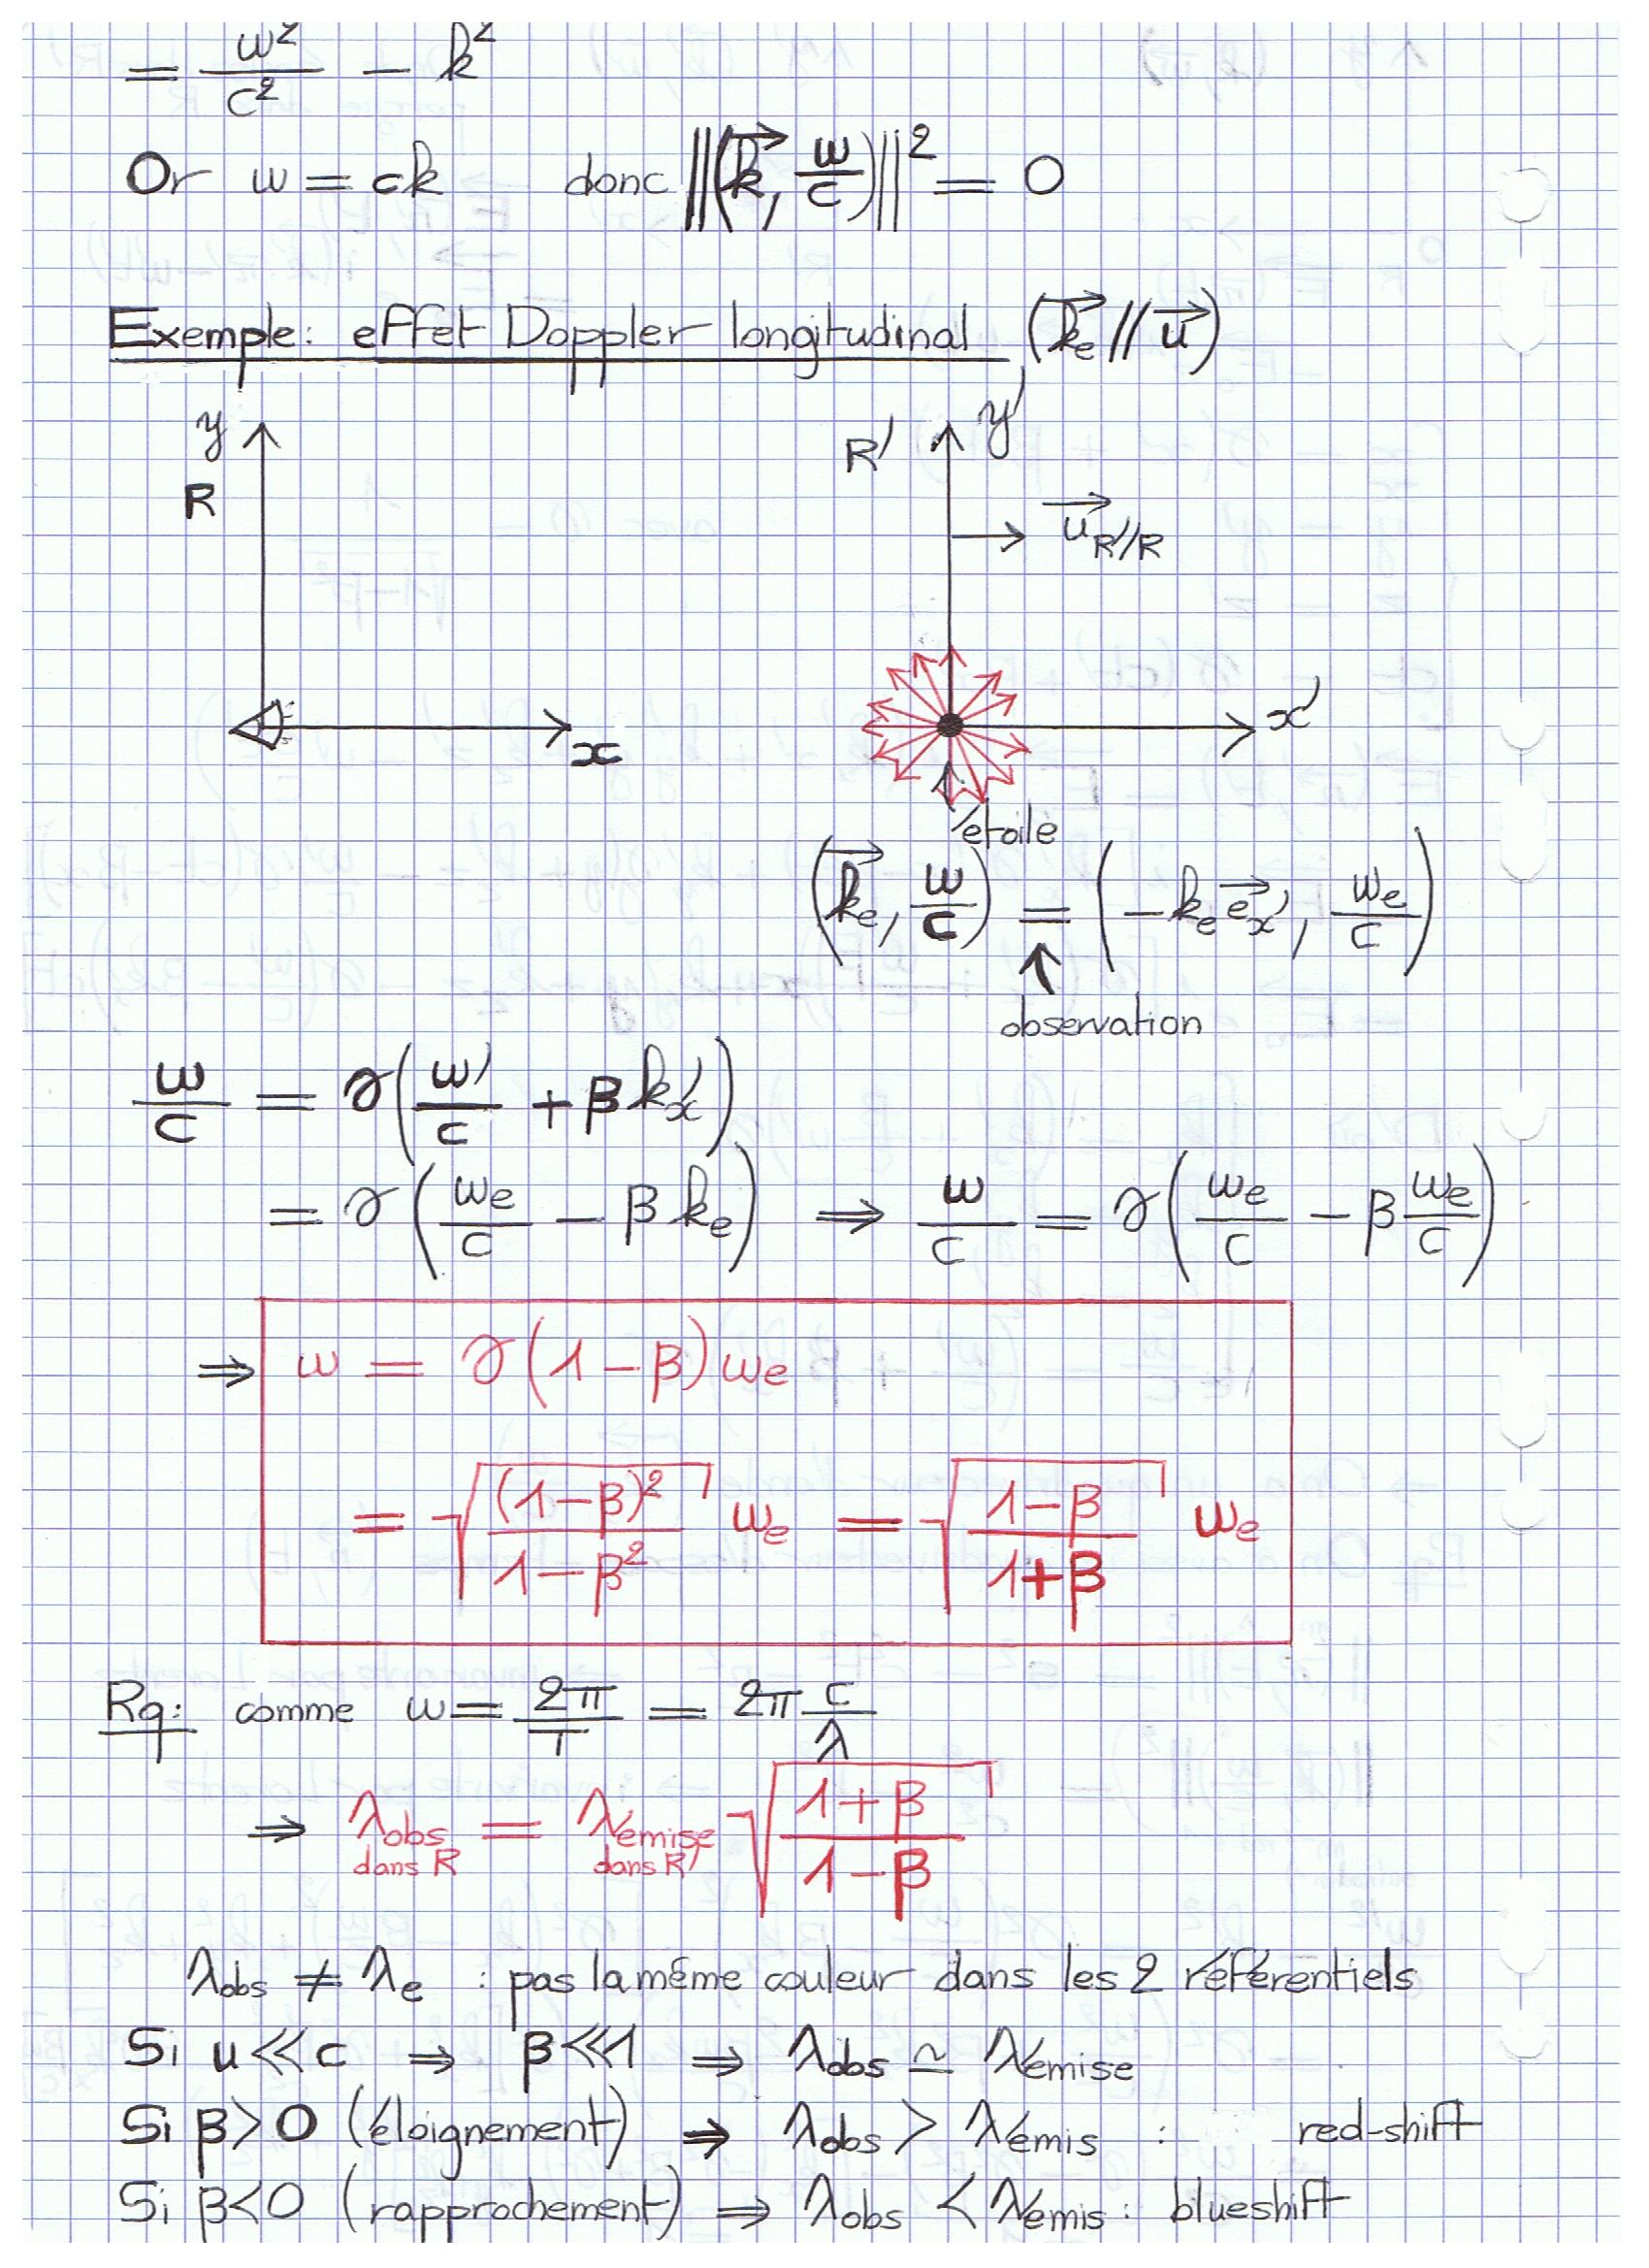 = ω²/c² − k²
Or ω = ck donc ||(k⃗, ω/c)||² = 0
Exemple: effet Doppler longitudinal (k⃗e // u⃗)
y R' y'
R u⃗R'/R
x x'
étoile
(k⃗e, ω/c) = (−ke e⃗x', ωe/c)
observation
ω/c = γ(ω'/c + βk'x)
= γ(ωe/c − β ke) ⇒ ω/c = γ(ωe/c − β ωe/c)
⇒ ω = γ(1−β)ωe
= √((1−β)²/(1−β²)) ωe = √((1−β)/(1+β)) ωe
Rq: comme ω = 2π/T = 2π c/λ
⇒ λobs dans R = λémise dans R' √((1+β)/(1−β))
λobs ≠ λe : pas la même couleur dans les 2 référentiels
Si u ≪ c ⇒ β ≪ 1 ⇒ λobs ≃ λémise
Si β > 0 (éloignement) ⇒ λobs > λémis : red-shift
Si β < 0 (rapprochement) ⇒ λobs < λémis : blueshift